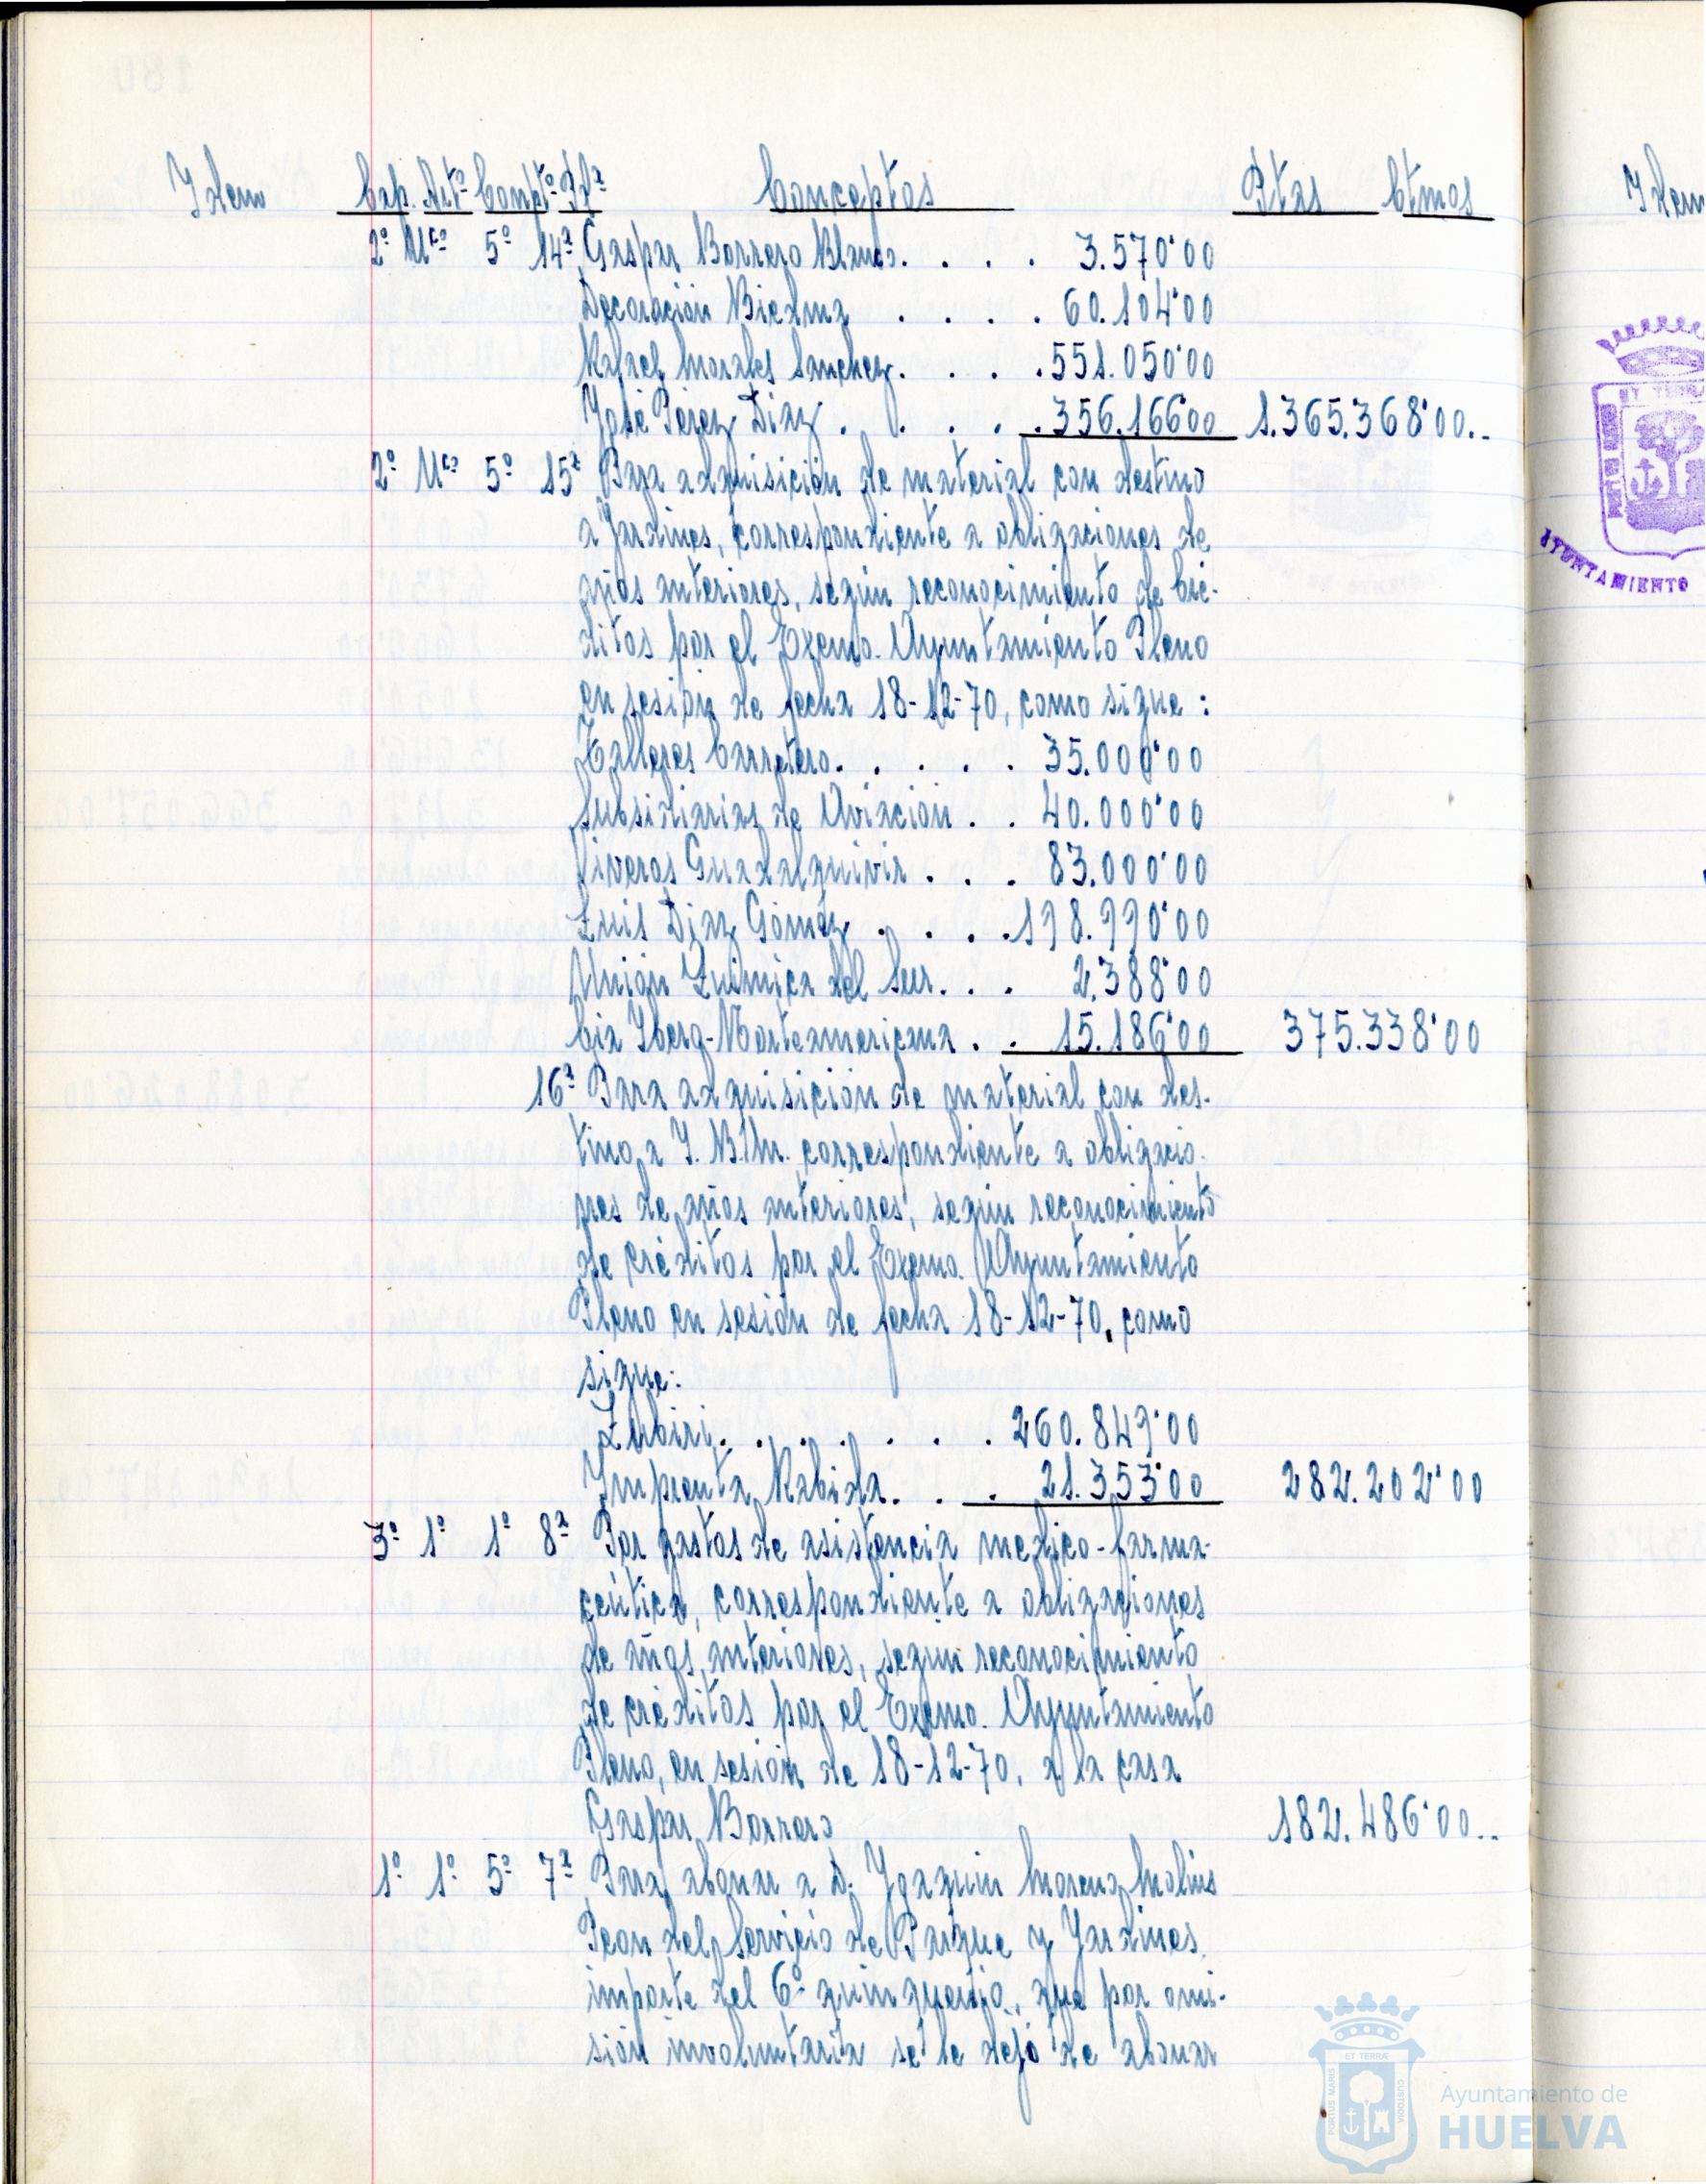 Item Cap. Artº Conptº Pfª Conceptos Ptas Ctmos
2º Uco 5º 14ª Gaspar Barrero Blanco. . . . 3.570'00
Decoración Biedma . . . . 60.104'00
Rafael Morales Sanchez. . . . 551.050'00
José Pérez Diaz . . . . 356.166'00 1.365.368'00..
2º Uco 5º 15ª Para adquisición de material con destino
a Jardines, correspondiente a obligaciones de
años anteriores, según reconocimiento de cré-
ditos por el Excmo. Ayuntamiento Pleno
en sesión de fecha 18-12-70, como sigue:
Talleres Carretero. . . . . 35.000'00
Subsidiarias de Aviación . . 40.000'00
Viveros Guadalquivir . . . 83.000'00
Luis Diaz Gómez . . . . 198.990'00
Unión Quimica del Sur. . . 2.388'00
Cia Ibero-Norteamericana . . 15.186'00 375.338'00
16ª Para adquisición de material con des-
tino a I. B.M. correspondiente a obligacio-
nes de años anteriores, según reconocimiento
de créditos por el Excmo. Ayuntamiento
Pleno en sesión de fecha 18-12-70, como
sigue:
Zubiri. . . . . . . 260.849'00
Imprenta Rabida. . . 21.353'00 282.202'00
3º 1º 1º 8ª Por gastos de asistencia medico-farma-
ceútica, correspondiente a obligaciones
de años anteriores, según reconocimiento
de créditos por el Excmo. Ayuntamiento
Pleno, en sesión de 18-12-70, a la casa
Gaspar Barrero 182.486'00..
1º 1º 5º 7ª Para abonar a D. Joaquin Moreno Molins
Peon del Servicio de Parque y Jardines
importe del 6º quinquenio, que por omi-
sión involuntaria se le dejó de abonar
Item
AYUNTAMIENTO
ET TERRÆ
PORTUS MARIS
CUSTODIA
Ayuntamiento de
HUELVA